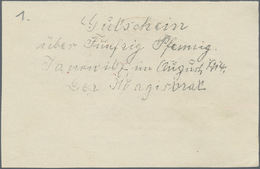 1.
Gutschein
über Fünfzig Pfennig.
Janowitz im August 1914.
Der Magistrat